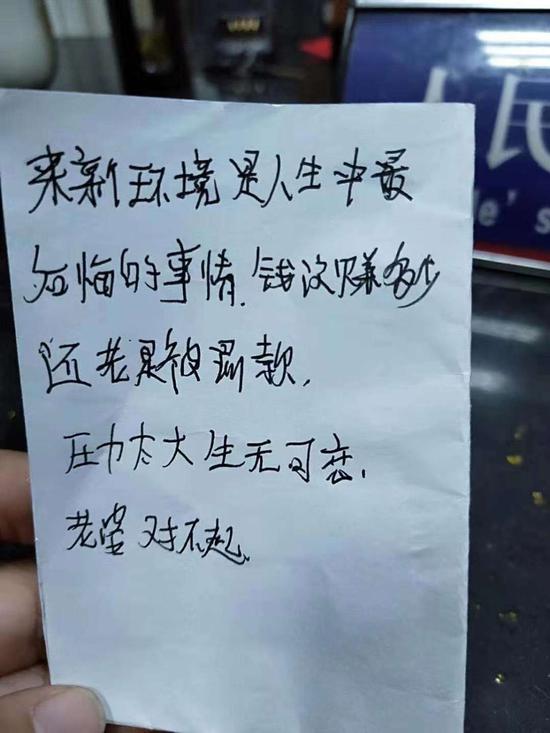 来新环境是人生中最
后悔的事情.钱没赚多少
还老是被罚款.
压力太大生无可恋.
老婆对不起
民
le's